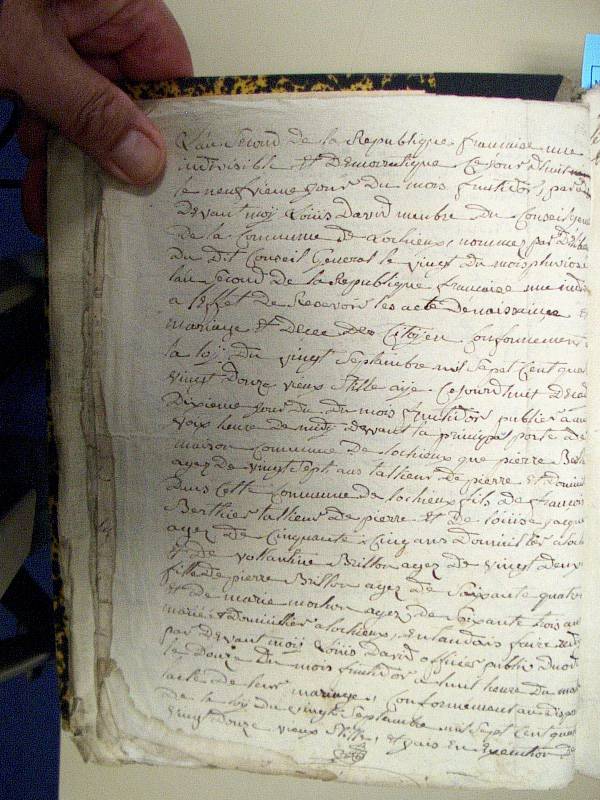 L'an second de la Republique francaise une
indivisible et democratique ce jour d'huit
le neufvieme jour du mois fructidor, par
devant moy Louis David membre du Conseil gene
de la Commune de Lochieux, nommez par
du dit Conseil general le vingt du mois pluviose
l'an second de la Republique francaise une indiv
a l'effet de Recevoir les acte de naissance
mariage et deces des Citoyen Conformement a
la loy du vingt Septembre mil sept cent quat
vingt douze vieux stille aije Cejourd'huit decad
dixieme jour du dit mois fructidor publier a une
voix heure de midy devant la principal porte de
maison Commune de Lochieux que pierre Berth
agez de vingt sept ans tallieur de pierre et domicil
dans cette Commune de Lochieux fils de francois
Berthier tallieur de pierre et de Louise jacque
agez de Cinquante Cinq ans domicillier a loch
et de vallantine Brillon agez de vingt deux
fille de pierre Brillon agez de soixante quatre
et de marie agez de soixante trois ans
mariés et domicillier a lochieux, entandais faire
par devant moy Louis David officier public
le douze du mois fructidor a huit heure du mat
lacte de leur mariage, Conformement aux
de la loy du vingt Septembre mil sept cent quat
vingt douze vieux stille, et vais en Execution de